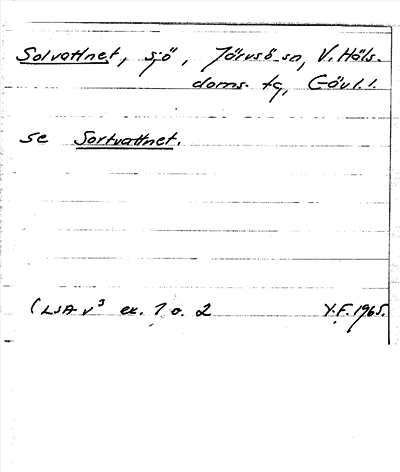 Solvattnet, sjö, Järvsö sn, V. Häls.
doms. tg, Gävl. l.
se Sortvattnet.
(LSA v³ ex. 1 o. 2 Y.F. 1965.